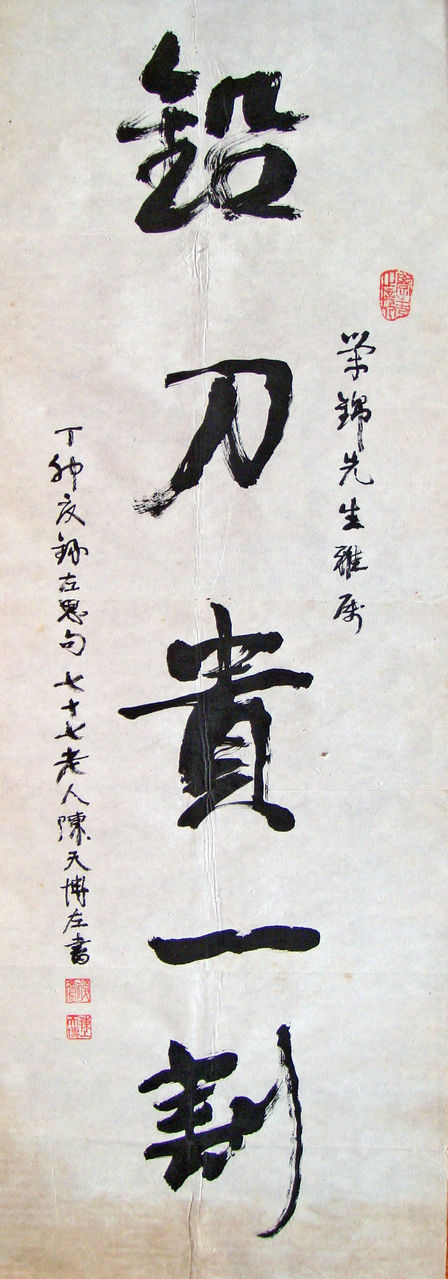 荣錦先生雅屬
鉛刀貴一割
丁卯夏錄左思句七十七老人陳天博左書